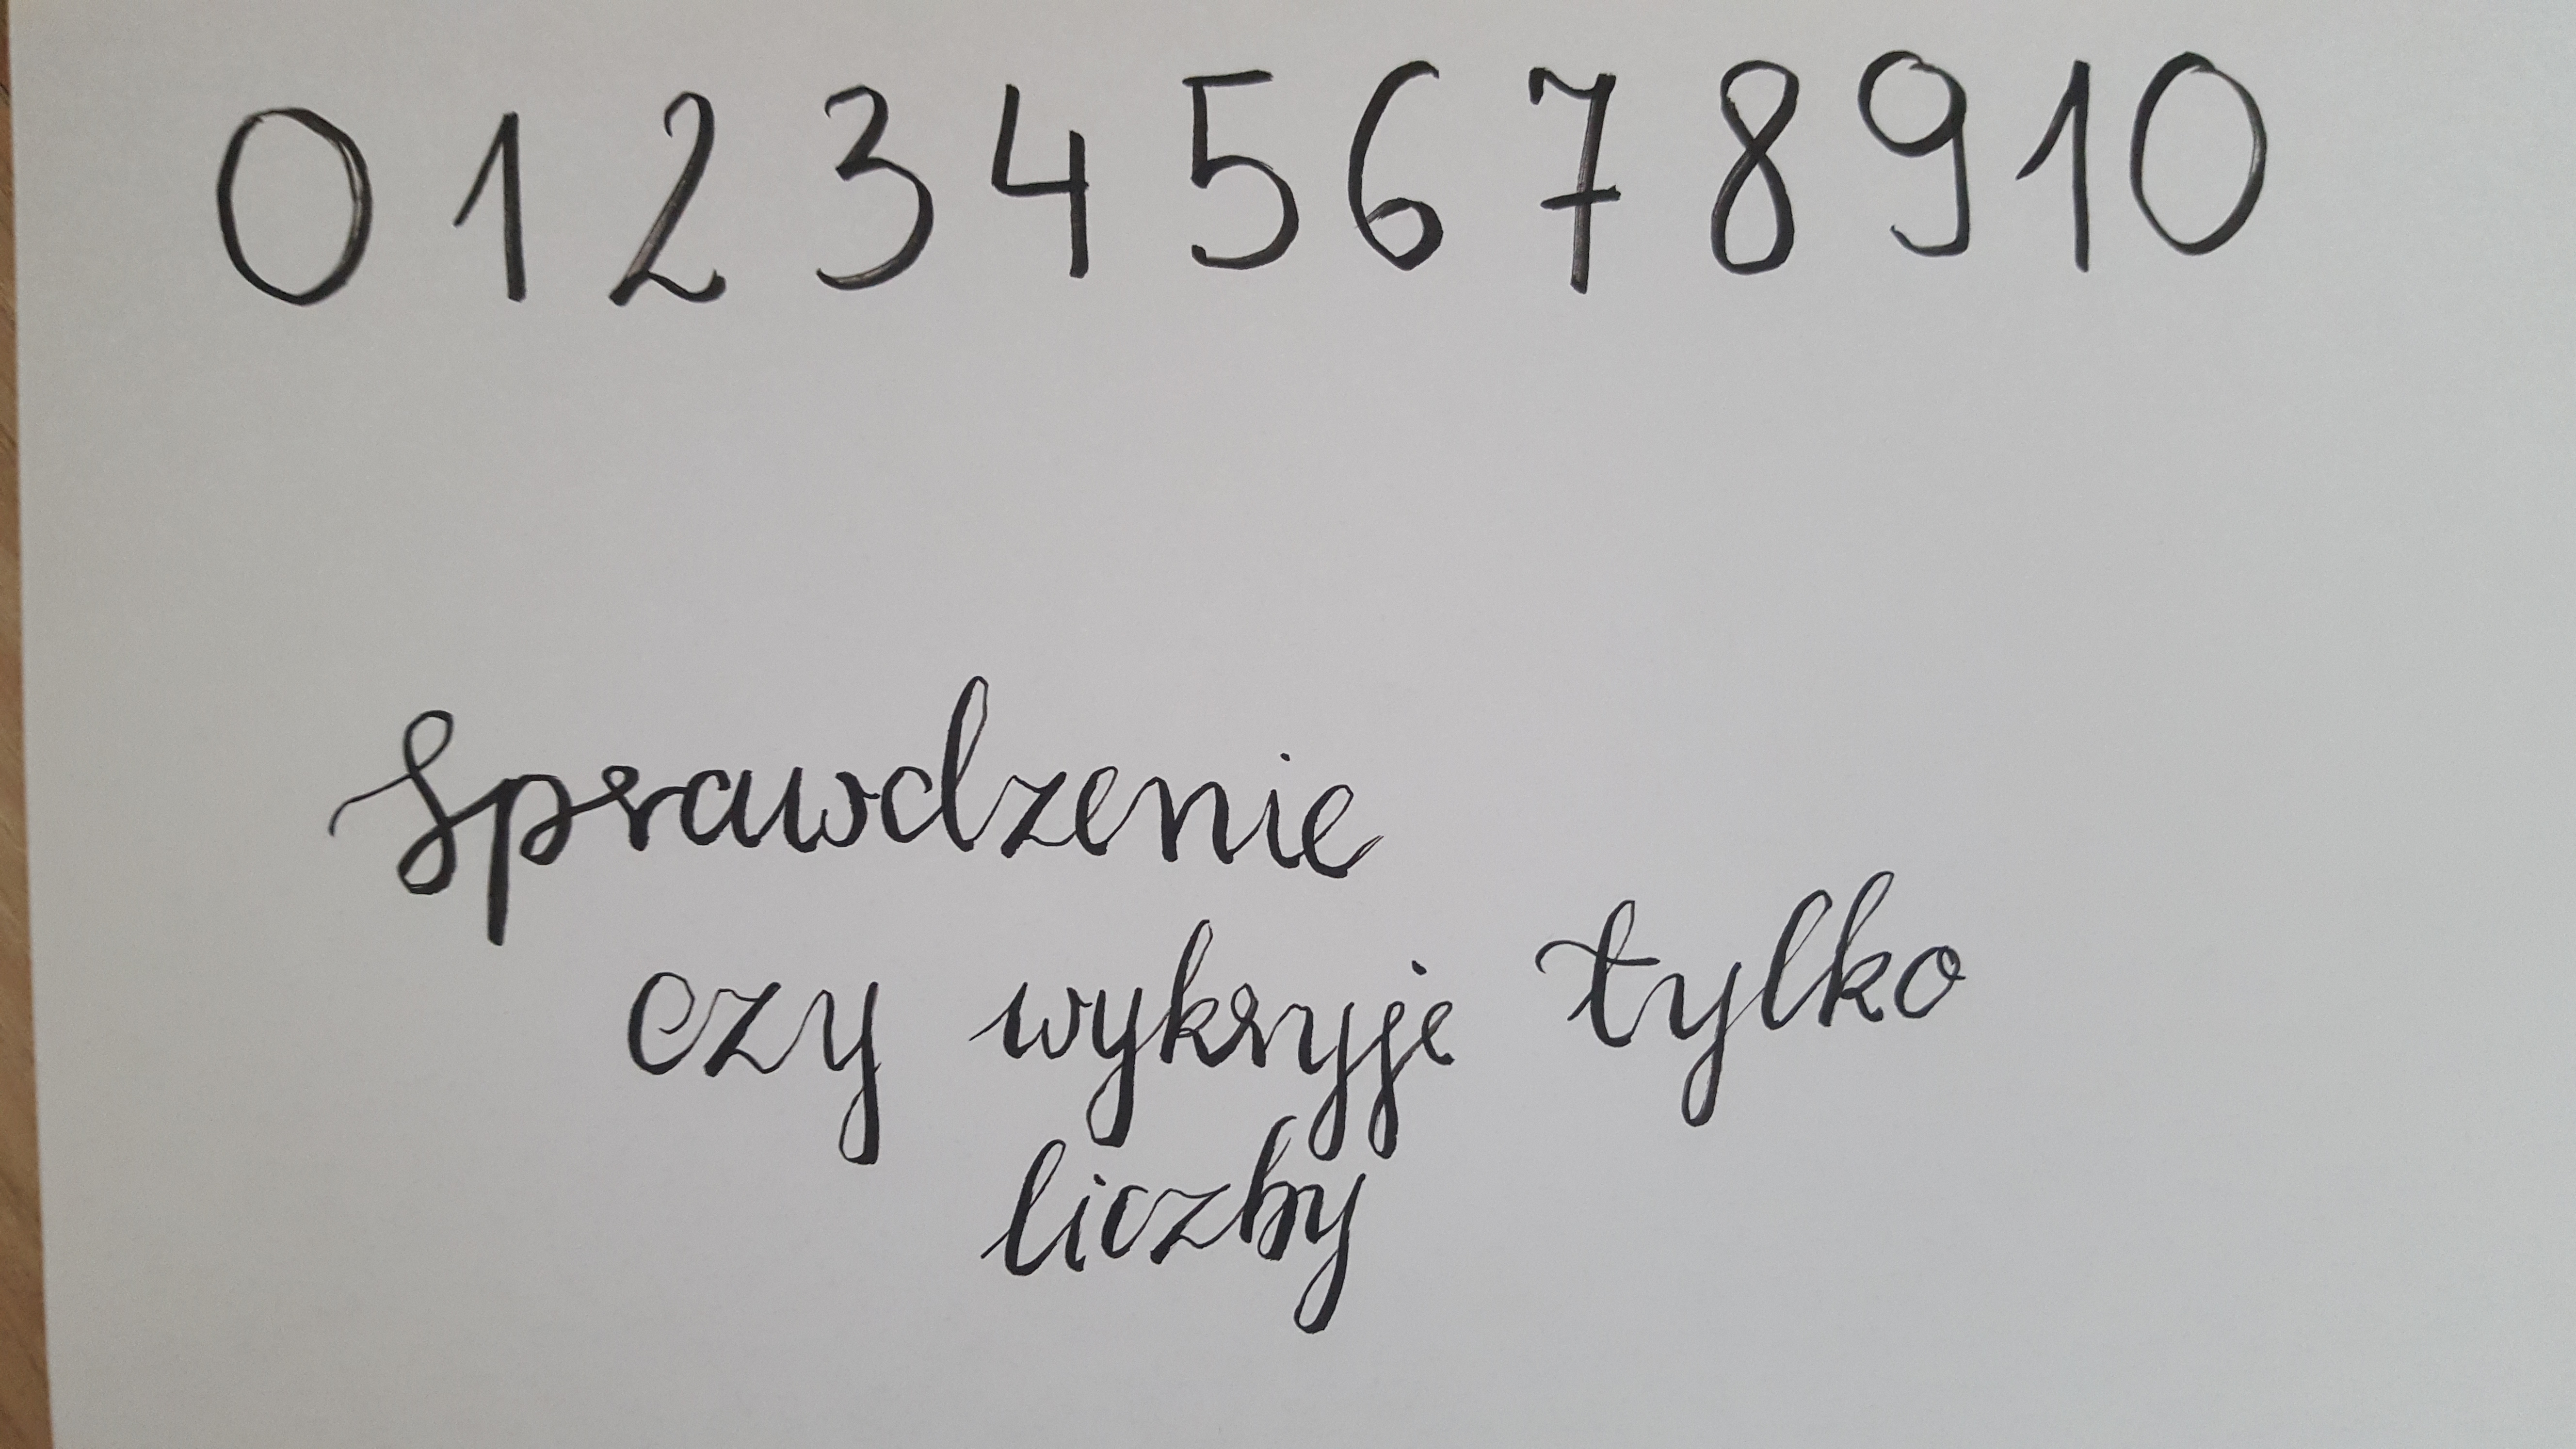 0 1 2 3 4 5 6 7 8 9 10
Sprawdzenie
czy wykryje tylko
liczby